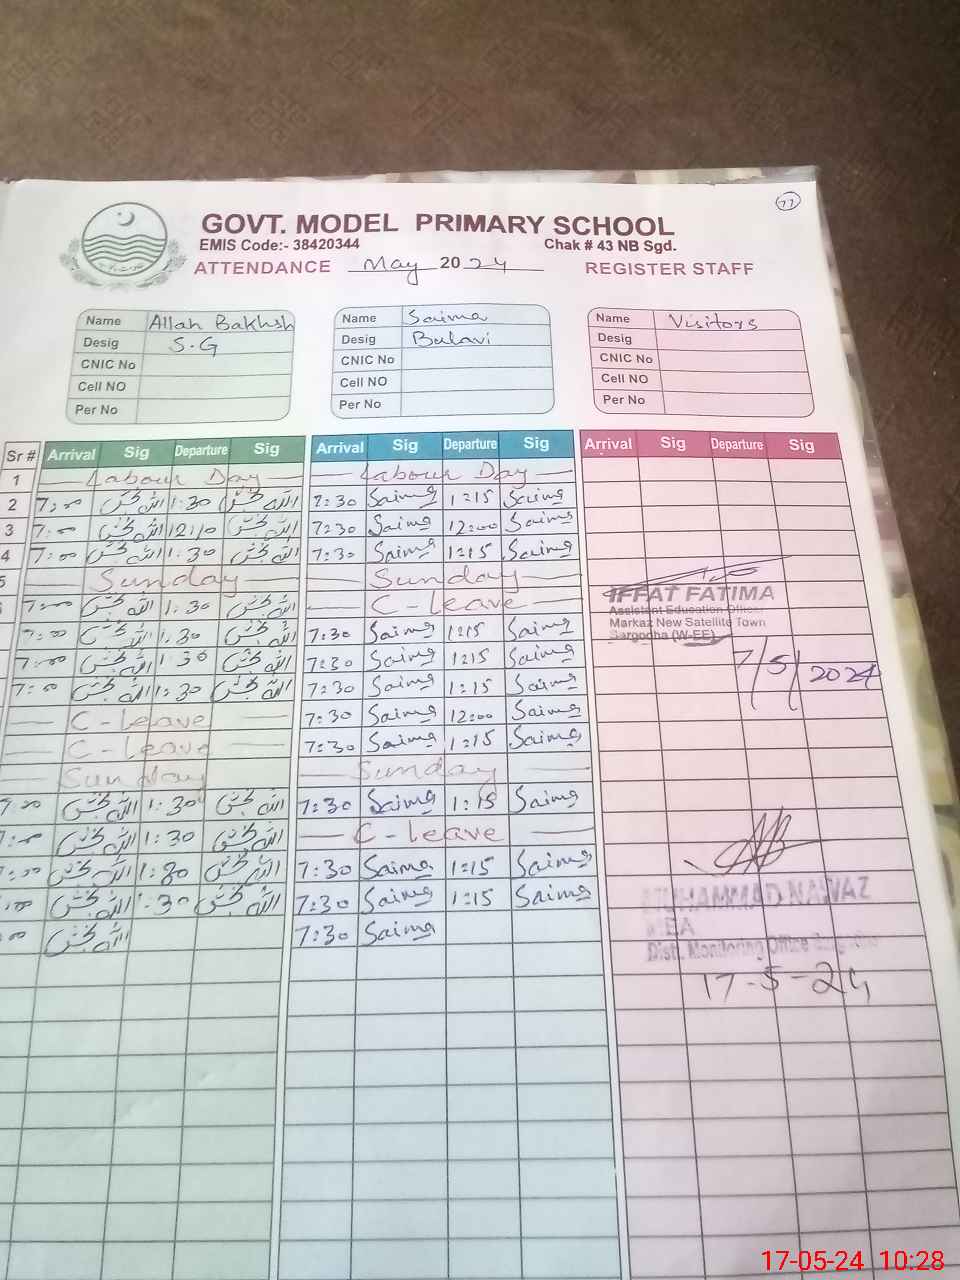 77
GOVT. MODEL PRIMARY SCHOOL
EMIS Code:- 38420344 Chak # 43 NB Sgd.
ATTENDANCE May 2024 REGISTER STAFF
Name Allah Bakhsh Name Saima Name Visitors
Desig S.G Desig Desig
CNIC No CNIC No CNIC No
Cell NO Cell NO Cell NO
Per No Per No Per No
Sr # Arrival Sig Departure Sig Arrival Sig Departure Sig Arrival Sig Departure Sig
1 Labour Day Labour Day
2 7:00 اللہ بخش 1:30 اللہ بخش 7:30 Saima 1:15 Saima
3 7:00 اللہ بخش 12:10 اللہ بخش 7:30 Saima 12:00 Saima
4 7:00 اللہ بخش 1:30 اللہ بخش 7:30 Saima 1:15 Saima
5 Sunday Sunday
7:00 اللہ بخش 1:30 اللہ بخش C-Leave
7:00 اللہ بخش 1:30 اللہ بخش 7:30 Saima 1:15 Saima
7:00 اللہ بخش 1:30 اللہ بخش 7:30 Saima 1:15 Saima
7:00 اللہ بخش 1:30 اللہ بخش 7:30 Saima 1:15 Saima
C-Leave 7:30 Saima 12:00 Saima
C-Leave 7:30 Saima 1:15 Saima
Sunday Sunday
7:00 اللہ بخش 1:30 اللہ بخش 7:30 Saima 1:15 Saima
7:00 اللہ بخش 1:30 اللہ بخش C-Leave
7:00 اللہ بخش 1:30 اللہ بخش 7:30 Saima 1:15 Saima
:00 اللہ بخش 1:30 اللہ بخش 7:30 Saima 1:15 Saima
:00 اللہ بخش 7:30 Saima
IFFAT FATIMA
Assistant Education Officer
Markaz New Satellite Town
Sargodha (W-EE)
7/5/2024
MUHAMMAD NAWAZ
MEA
Distt. Monitoring Office Sargodha
17-5-24
17-05-24 10:28